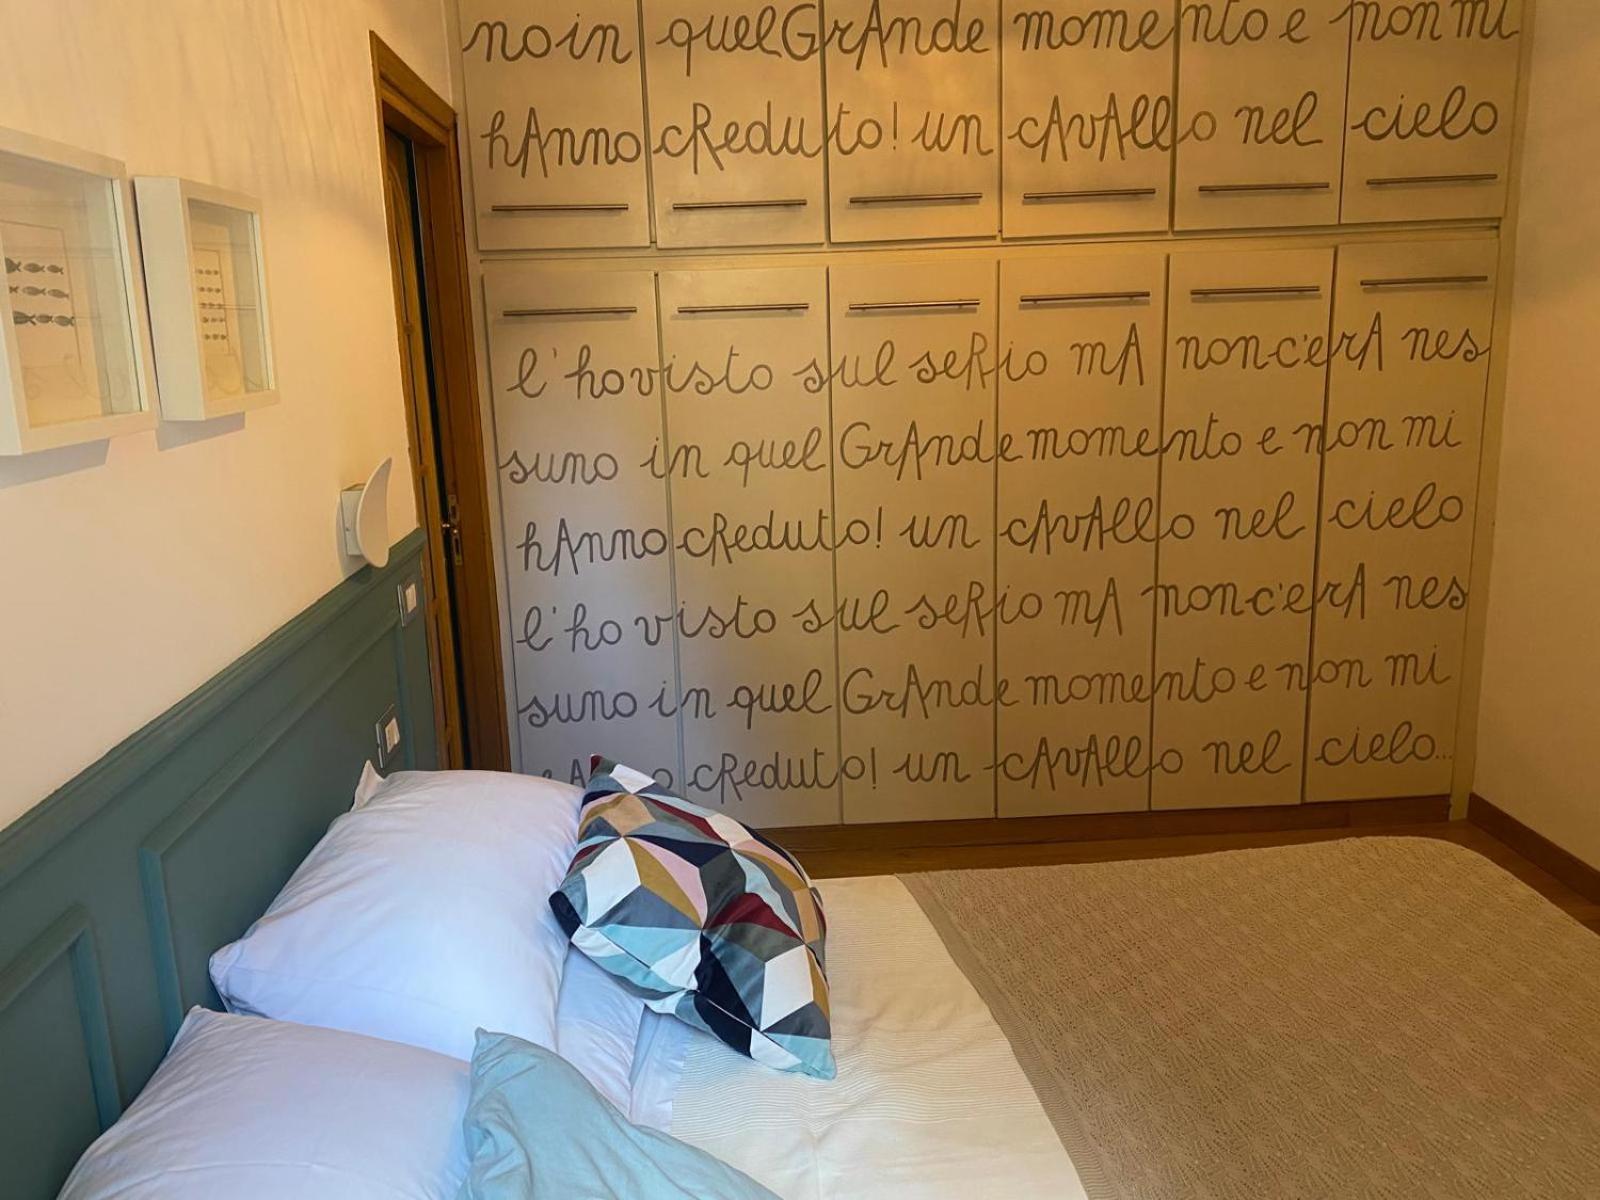 no in quel GrAnde momento e non mi
hAnno cReduto! un cAvAllo nel cielo
l'ho visto sul seRio mA non c'erA nes
suno in quel GrAnde momento e non mi
hAnno cReduto! un cAvAllo nel cielo
l'ho visto sul seRio mA non c'erA nes
suno in quel GrAnde momento e non mi
hAnno cReduto! un cAvAllo nel cielo...